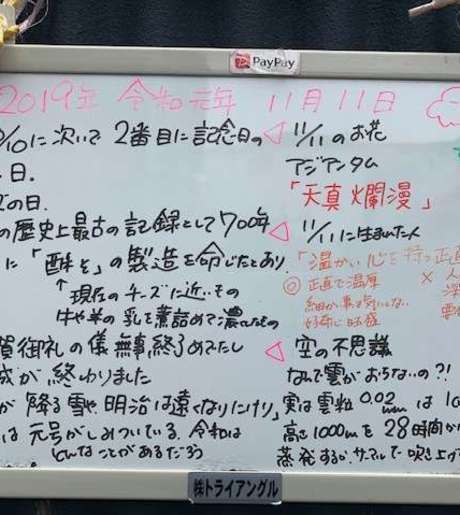 PayPay
2019年 令和元年 11月11日
0/10に次いで 2番目に記念日の
日.
の日.
の歴史上最古の記録として700年
に「酥を」の製造を命じたとあり.
↑現在のチーズに近い.その
牛や羊の乳を煮詰めて濃したもの
賀御礼の儀 無事終了めでたし
成が終わりました
が 降る雪や 明治は遠くなりにけり」
は元号がしみついている. 令和は
どんなことがあるだろう
◁ 11/11のお花
アジアンタム
「天真爛漫」
◁ 11/11に生まれた人
「温かい心を持つ正直
◎ 正直で温厚
細かい事は気にしない
好奇心旺盛
× 人
深
◁ 空の不思議
なんで雲がおちないの?!
実は雲粒 0.02mmは 1c
高さ1000mを28時間か
蒸発するか.サーマルで 吹き上げ
㈱トライアングル